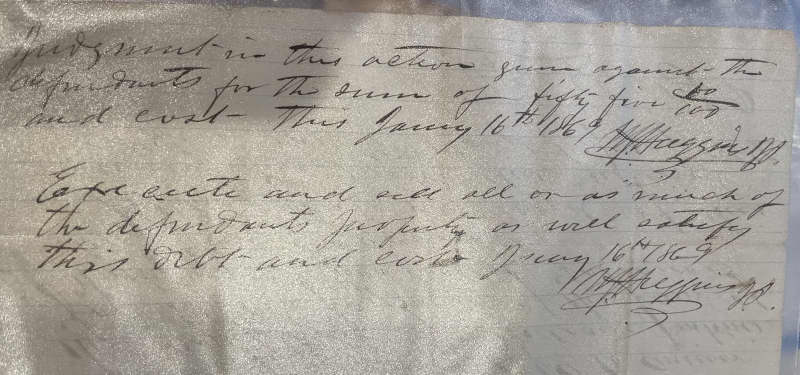 Judgment in this action given against the
defendants for the sum of fifty five 00/100
and cost this Jany 16th 1869
Execute and sell all or as much of
the defendants property as will satisfy
this debt and cost Jany 16th 1869